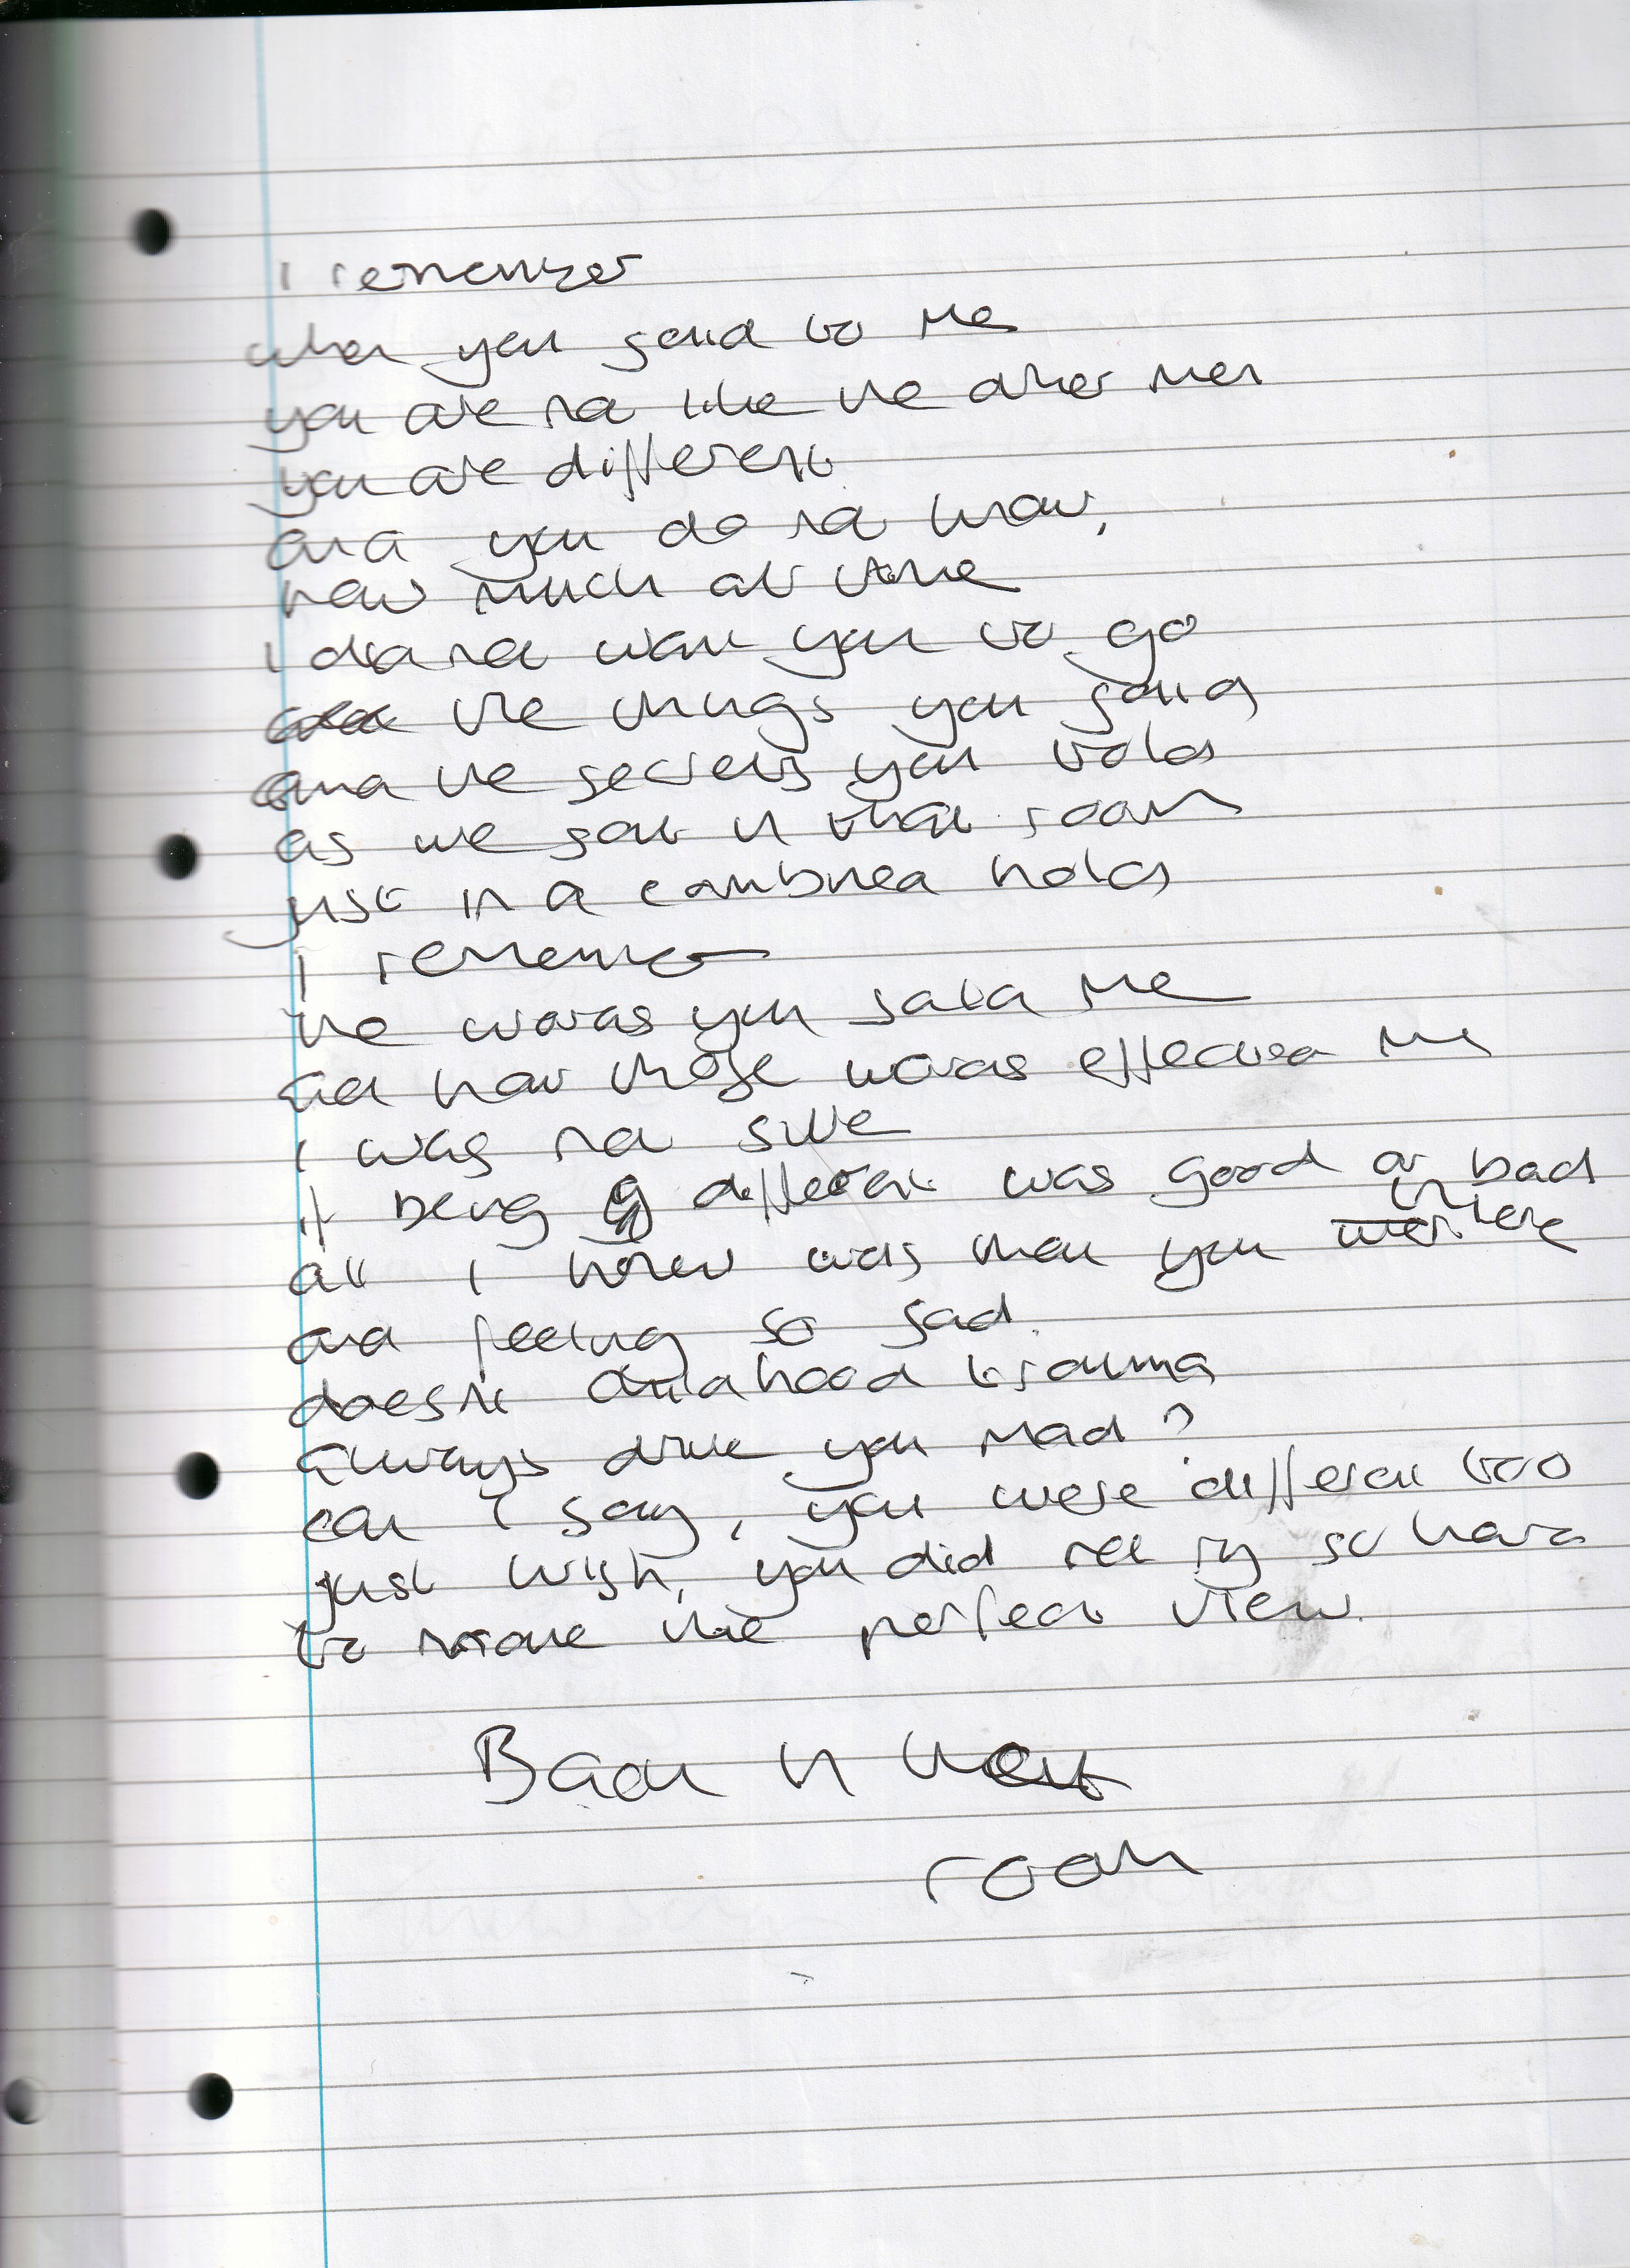 I remember
when you said to me
you are not like the other men
you are different
and you do not know,
how much at time
I did not want you to go
the things you said
and the secrets you told
as we sat in that room
just in a combined hold
I remember
the words you said me
and how those words effected me
I was not sure
if being different was good or bad
all I knew was that you were there
and feeling so sad.
doesn't childhood trauma
always drive you mad?
can I say, you were different too
just wish, you did not try so hard
to make the perfect view.
Back in that
room